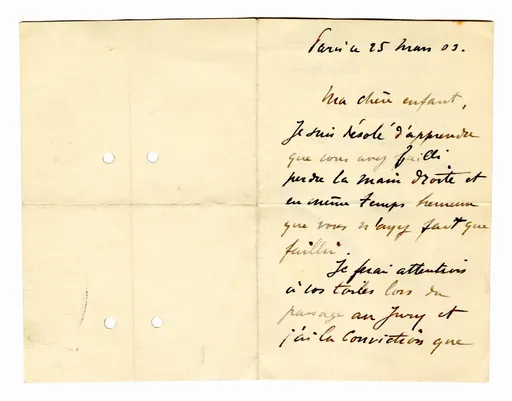 Paris le 25 mars 03.
Ma chère enfant,
Je suis désolé d'apprendre
que vous avez failli
perdre la main droite et
en même temps heureux
que vous n'ayez fait que
faillir.
Je ferai attention
à vos toiles lors du
passage au Jury et
j'ai la Conviction que